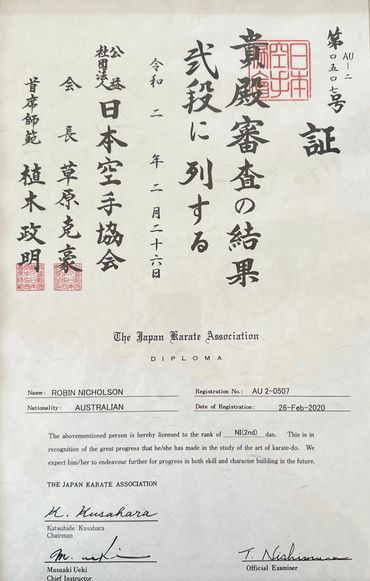 第AU-二
〇五〇七号
証
貴殿審査の結果
弐段に列する
令和二年二月二十六日
公益
社団法人 日本空手協会
会長 草原克豪
首席師範 植木政明
The Japan Karate Association
DIPLOMA
Name: ROBIN NICHOLSON
Registration No.: AU 2-0507
Nationality: AUSTRALIAN
Date of Registration: 26-Feb-2020
The abovementioned person is hereby licensed to the rank of NI(2nd) dan. This is in
recognition of the great progress that he/she has made in the study of the art of karate-do. We
expect him/her to endeavour further for progress in both skill and character building in the future.
THE JAPAN KARATE ASSOCIATION
K. Kusahara
Katsuhide Kusahara
Chairman
M. Ueki
Masaaki Ueki
Chief Instructor
Official Examiner